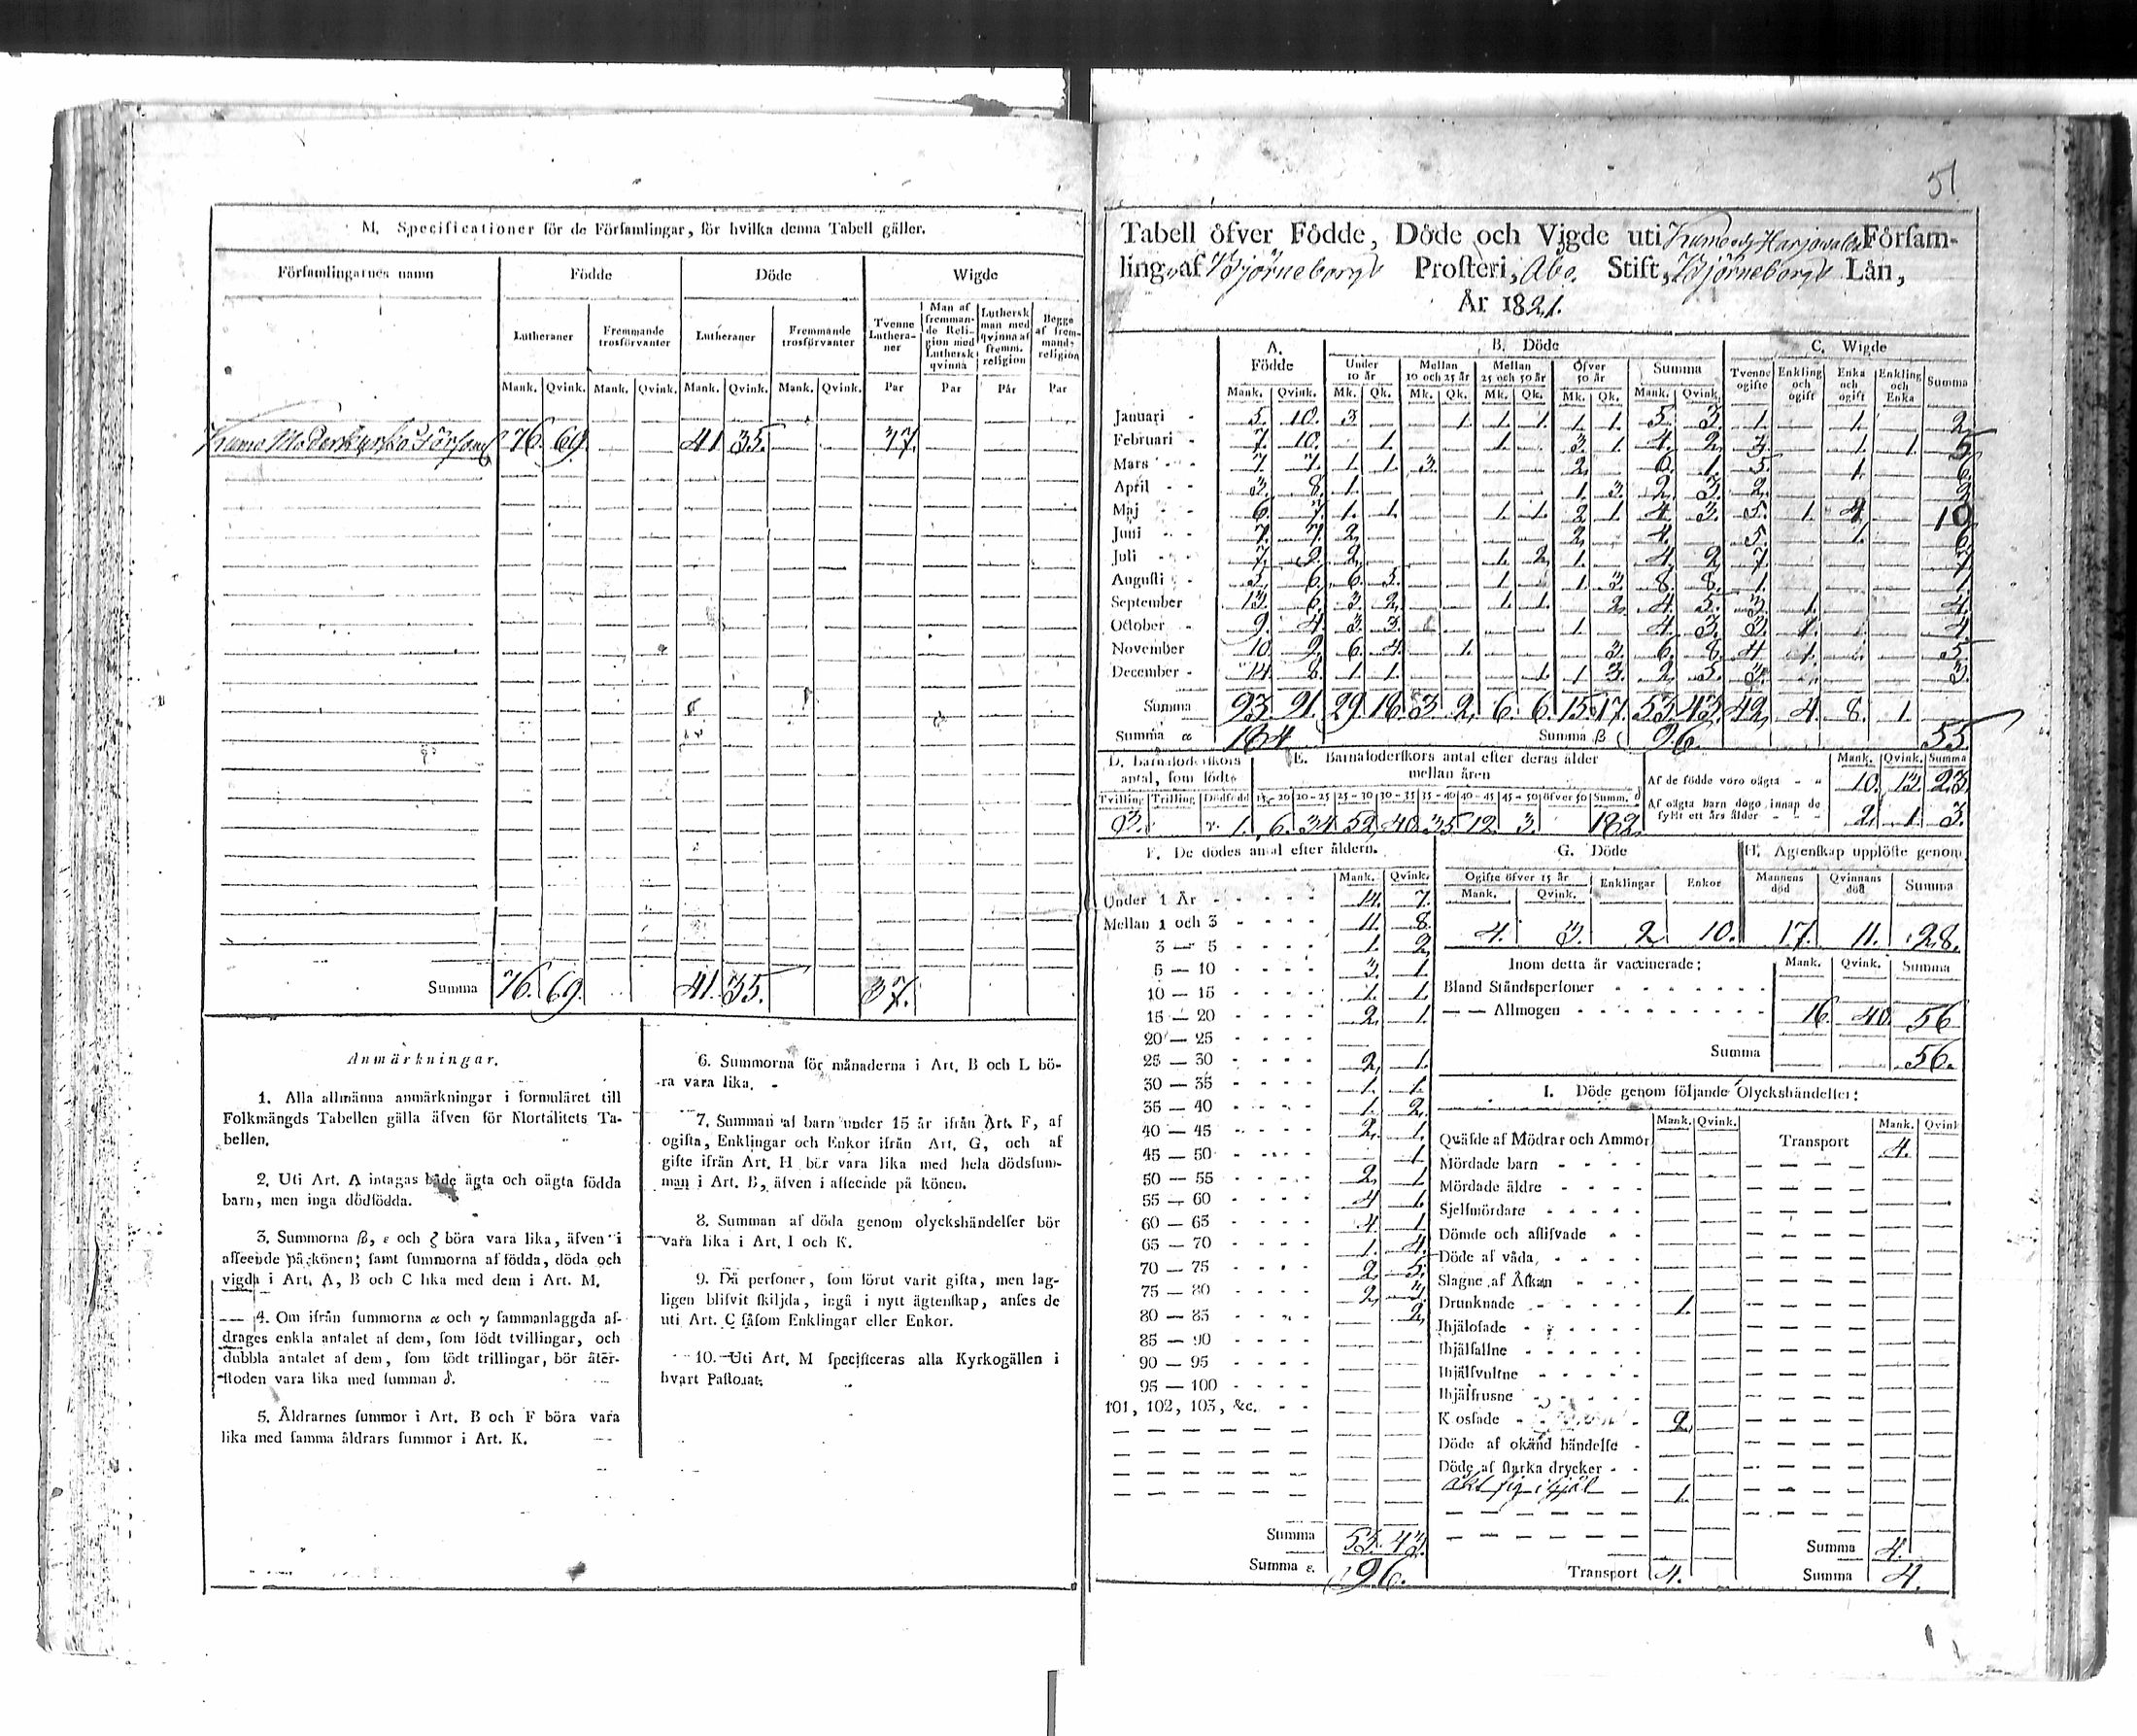 M. Specificationer för de Församlingar, för hvilka denna Tabell gäller.
Församlingarnes namn Födde Döde Wigde
Lutheraner Fremmande trosförvanter Lutheraner Fremmande trosförvanter Tvenne Lutheraner Man af fremmande Religion med Luthersk qvinna Luthersk man med qvinna af fremm. religion Begge af fremmande religion
Mank. Qvink. Mank. Qvink. Mank. Qvink. Mank. Qvink. Par Par Pår Par
Kumo Moderkyrko Förſaml 76. 69. 41 35. 37.
Summa 76. 69. 41. 35. 37.
Anmärkningar.
1. Alla allmänna anmärkningar i formuläret till
Folkmängds Tabellen gälla äfven för Mortalitets Ta-
bellen.
2. Uti Art. A intagas både ägta och oägta födda
barn, men inga dödfödda.
3. Summorna β, ε och ζ böra vara lika, äfven i
aſſeende på könen; ſamt ſummorna af födda, döda och
vigda i Art. A, B och C lika med dem i Art. M.
4. Om ifrån ſummorna α och γ ſammanlaggda af-
drages enkla antalet af dem, ſom födt tvillingar, och
dubbla antalet af dem, ſom födt trillingar, bör åter-
ſtoden vara lika med ſumman δ.
5. Åldrarnes ſummor i Art. B och F böra vara
lika med ſamma åldrars ſummor i Art. K.
6. Summorna för månaderna i Art. B och L bö-
ra vara lika.
7. Summan af barn under 15 år ifrån Art. F, af
ogifta, Enklingar och Enkor ifrån Art. G, och af
gifte ifrån Art. H bör vara lika med hela dödsſum-
man i Art. B, äfven i aſſeende på könen.
8. Summan af döda genom olyckshändelſer bör
vara lika i Art. I och K.
9. Då perſoner, ſom förut varit gifta, men lag-
ligen blifvit ſkiljda, ingå i nytt ägtenſkap, anſes de
uti Art. C ſåſom Enklingar eller Enkor.
10. Uti Art. M ſpecificeras alla Kyrkogällen i
hvart Paſtorat.
51
Tabell öfver Födde, Döde och Vigde uti Kumo och Harjavalda Förſam-
ling af Björneborgs Proſteri, Åbo Stift, Björneborgs Län,
År 1821.
A. Födde B. Döde C. Wigde
Under 10 år Mellan 10 och 25 år Mellan 25 och 50 år Öfver 50 år Summa Tvenne ogifte Enkling och ogift Enka och ogift Enkling och Enka Summa
Mank. Qvink. Mk. Qk. Mk. Qk. Mk. Qk. Mk. Qk. Mank. Qvink.
Januari 5. 10. 3. 1. 1. 1. 1 1. 5. 3. 1. 1. 2.
Februari 7. 10. 1. 1. 3. 1. 4. 2. 3. 1 1. 5.
Mars 7. 7. 1. 1. 3. 2. 6. 1. 5. 1. 6.
April 3. 8. 1. 1. 3. 2. 3. 2. 2.
Maj 6. 7. 1. 1. 1. 1. 2. 1. 4. 3. 5. 1. 4. 10
Juni 7. 7. 2. 2. 4. 5. 1. 6.
Juli 7. 9. 2. 1. 2. 1. 4. 2. 7. 7
Auguſti 5. 6. 6. 5. 1. 1. 3. 8. 8. 1. 1.
September 13. 6. 3. 2. 1. 1. 2. 4. 5. 3. 1. 4.
October 9. 4. 3. 3. 1. 4. 3. 3. 1. 4.
November 10. 9. 6. 4. 1. 3. 6. 8. 4. 1. 5.
December 14. 8. 1. 1. 1. 1 3. 2. 5. 3. 3.
Summa 93. 91. 29. 18. 3. 2. 6. 6. 15. 17. 53. 43. 42. 4. 8. 1.
Summa α 184. Summa β 96. 55.
D. Barnaföderſkors antal, ſom födte
E. Barnaföderſkors antal efter deras ålder mellan åren
Mank. Qvink. Summa
Tvilling Trilling Dödfödd 15-20 20-25 25-30 30-35 35-40 40-45 45-50 öfver 50 Summ. δ
3. γ. 1. 6. 34. 52. 40. 35. 12. 3. 182.
Af de födde voro oägta 10. 13. 23.
Af oägta barn dogo innan de fyllt ett års ålder 2. 1. 3.
F. De dödes antal efter åldern.
Mank. Qvink.
Under 1 År 14. 7.
Mellan 1 och 3 11. 8.
3 — 5 1. 2.
5 — 10 3. 1.
10 — 15 1. 1.
15 — 20 2. 1.
20 — 25
25 — 30 2. 1.
30 — 35 1. 1.
35 — 40 1. 2.
40 — 45 2. 1.
45 — 50 1
50 — 55 2. 1.
55 — 60 4. 1.
60 — 65 4. 1.
65 — 70 1. 4.
70 — 75 2. 5.
75 — 80 2. 3.
80 — 85 2.
85 — 90
90 — 95
95 — 100
101, 102, 103, &c.
Summa 53. 43.
Summa ε. 96.
G. Döde
Ogifte öfver 15 år Enklingar Enkor
Mank. Qvink.
4. 3. 2 10.
H. Ägtenſkap upplöſte genom
Mannens död Qvinnans död Summa
17. 11. 28.
Inom detta år vaccinerade: Mank. Qvink. Summa
Bland Ståndsperſoner
— — Allmogen 16. 40. 56
Summa 56.
I. Döde genom följande Olyckshändelſer:
Mank. Qvink. Mank. Qvink
Qväfde af Mödrar och Ammor Transport 4.
Mördade barn
Mördade äldre
Sjelfmördare
Dömde och aflifvade
Döde af våda
Slagne af Åſkan
Drunknade 1.
Ihjälofade
Ihjälfallne
Ihjälſvultne
Ihjälfruſne
Kosſade 2.
Döde af okänd händelſe
Döde af ſtarka drycker
åkt ſig ihjäl 1.
Summa 4.
Transport 4. Summa 4.